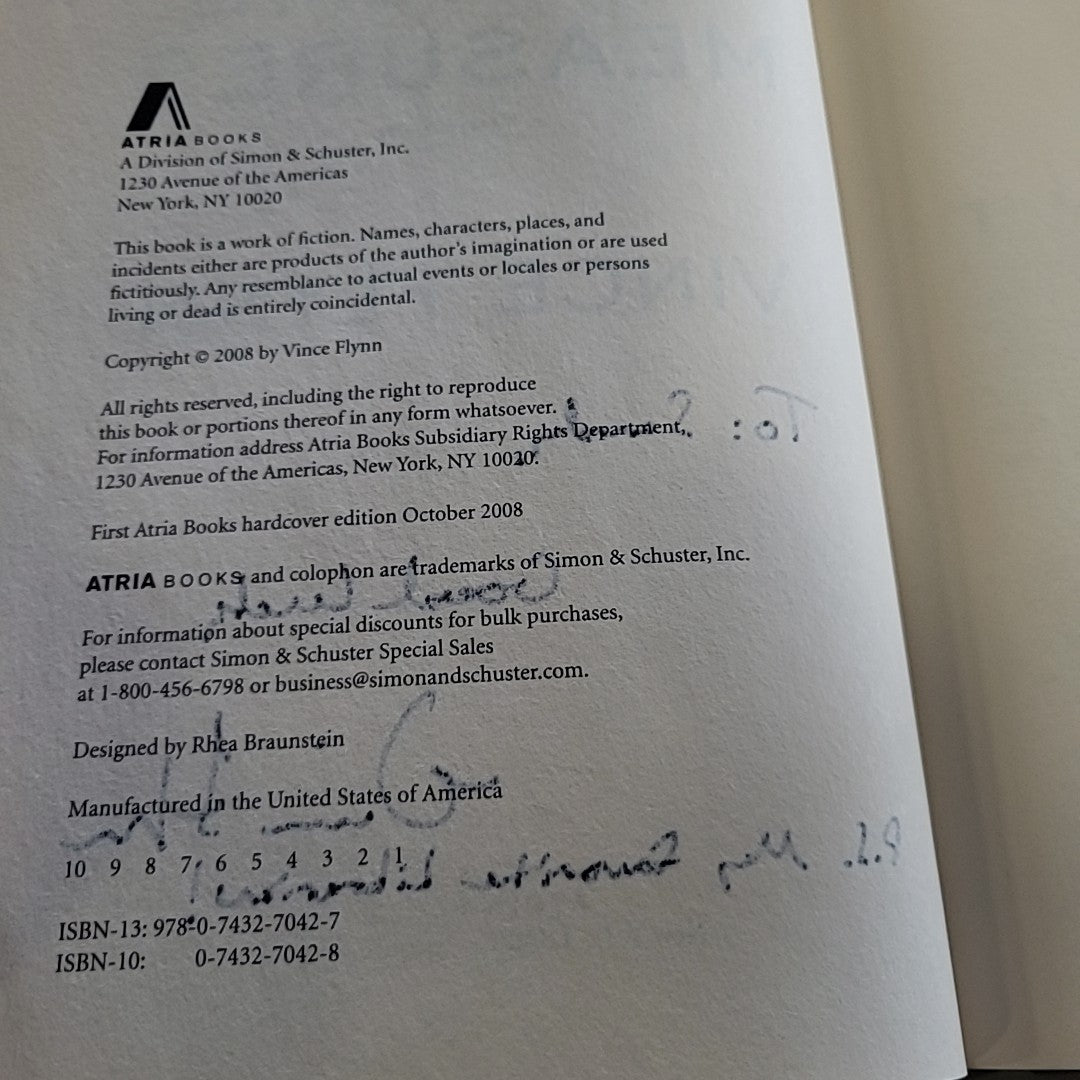 ATRIA BOOKS
A Division of Simon & Schuster, Inc.
1230 Avenue of the Americas
New York, NY 10020
This book is a work of fiction. Names, characters, places, and
incidents either are products of the author's imagination or are used
fictitiously. Any resemblance to actual events or locales or persons
living or dead is entirely coincidental.
Copyright © 2008 by Vince Flynn
All rights reserved, including the right to reproduce
this book or portions thereof in any form whatsoever.
For information address Atria Books Subsidiary Rights Department,
1230 Avenue of the Americas, New York, NY 10020.
To:
First Atria Books hardcover edition October 2008
ATRIA BOOKS and colophon are trademarks of Simon & Schuster, Inc.
For information about special discounts for bulk purchases,
please contact Simon & Schuster Special Sales
at 1-800-456-6798 or business@simonandschuster.com.
Designed by Rhea Braunstein
Manufactured in the United States of America
10 9 8 7 6 5 4 3 2 1
P.S. My favorite librarian!
ISBN-13: 978-0-7432-7042-7
ISBN-10: 0-7432-7042-8